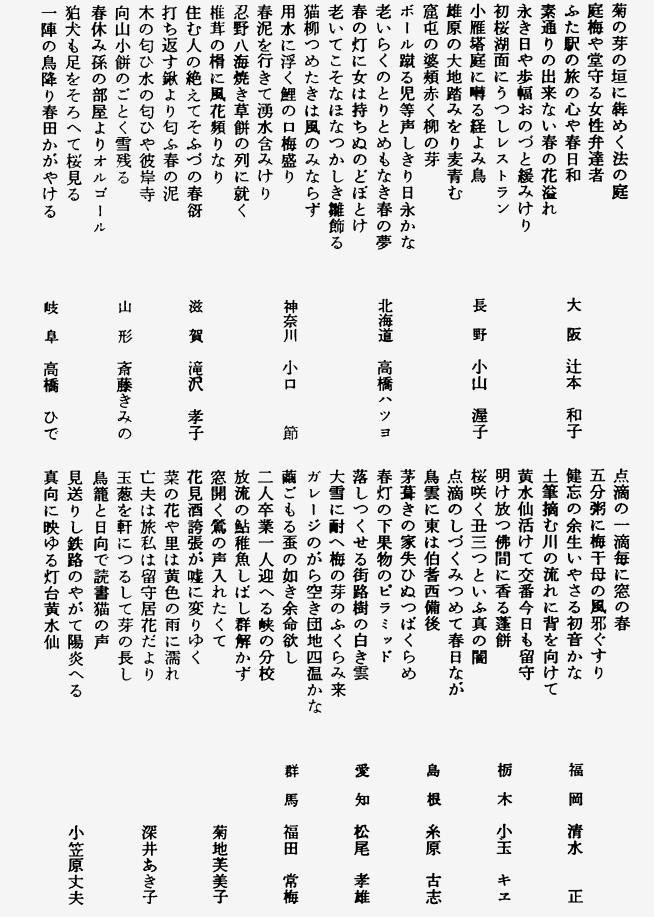 菊の芽の垣に犇めく法の庭
庭梅や堂守る女性弁達者
ふた駅の旅の心や春日和
大阪 辻本和子
素通りの出来ない春の花溢れ
永き日や歩幅おのづと緩みけり
初桜湖面にうつしレストラン
小雁塔庭に囀る経よみ鳥
長野 小山渥子
雄原の大地踏みをり麦青む
窟屯の婆頬赤く柳の芽
ボール蹴る児等声しきり日永かな
老いらくのとりとめもなき春の夢
北海道 高橋ハツヨ
春の灯に女は持ちぬのどぼとけ
老いてこそなほなつかしき雛飾る
猫柳つめたきは風のみならず
用水に浮く鯉の口梅盛り
神奈川 小口節
春泥を行きて湧水含みけり
忍野八海焼き草餅の列に就く
椎茸の榾に風花頻りなり
住む人の絶えてそふづの春谺
滋賀 滝沢孝子
打ち返す鍬より匂ふ春の泥
木の匂ひ水の匂ひや彼岸寺
向山小餅のごとく雪残る
山形 斎藤きみの
春休み孫の部屋よりオルゴール
狛犬も足をそろへて桜見る
一陣の鳥降り春田かがやける
岐阜 高橋ひで
点滴の一滴毎に窓の春
五分粥に梅干母の風邪ぐすり
健忘の余生いやさる初音かな
福岡 清水正
土筆摘む川の流れに背を向けて
黄水仙活けて交番今日も留守
明け放つ佛間に香る蓬餅
栃木 小玉キヱ
桜咲く丑三つといふ真の闇
点滴のしづくみつめて春日なが
鳥雲に東は伯耆西備後
島根 糸原古志
茅葺きの家失ひぬつばくらめ
春灯の下果物のピラミッド
落しつくせる街路樹の白き雲
愛知 松尾孝雄
大雪に耐へ梅の芽のふくらみ来
ガレージのがら空き団地四温かな
繭ごもる蚕の如き余命欲し
群馬 福田常梅
二人卒業一人迎へる峡の分校
放流の鮎稚魚しばし群解かず
窓開く鶯の声入れたくて
菊地芙美子
花見酒誇張が嘘に変りゆく
菜の花や里は黄色の雨に濡れ
亡夫は旅私は留守居花だより
深井あき子
玉葱を軒につるして芽の長し
鳥籠と日向で読書猫の声
見送りし鉄路のやがて陽炎へる
小笠原丈夫
真向に映ゆる灯台黄水仙